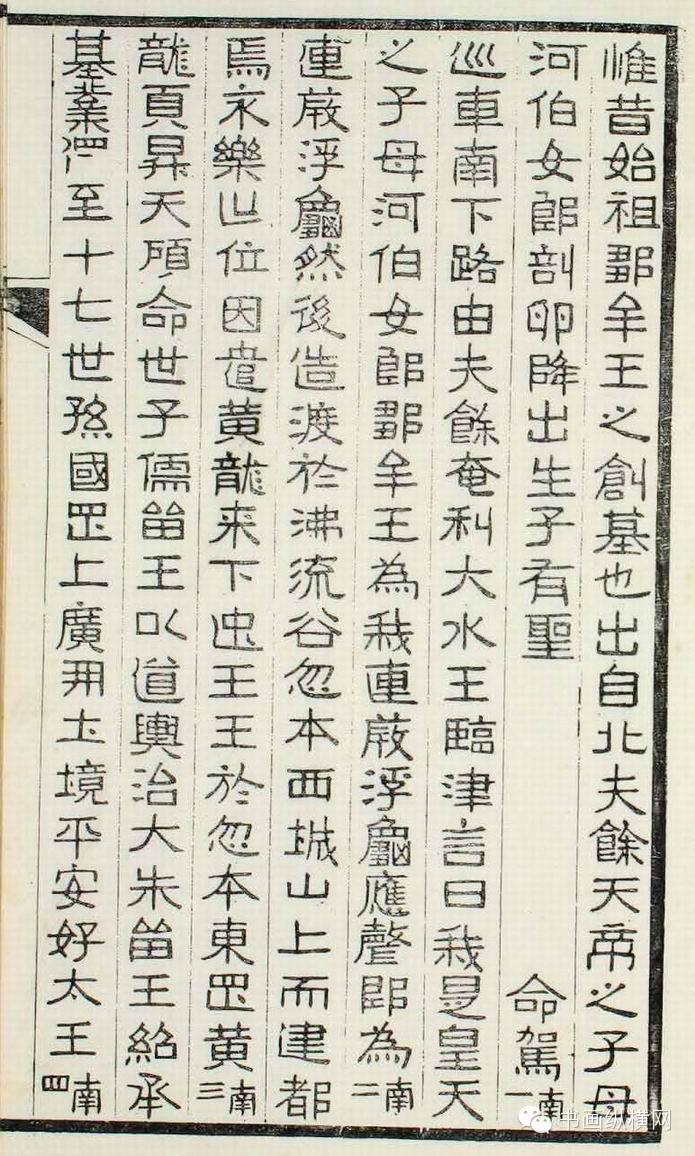 惟昔始祖鄒牟王之創基也出自北夫餘天帝之子母
河伯女郎剖卵降出生子有聖 命駕 南一
巡車南下路由夫餘奄利大水王臨津言曰我是皇天
之子母河伯女郎鄒牟王為我連葭浮龜應聲即為 南二
連葭浮龜然後造渡於沸流谷忽本西城山上而建都
焉永樂世位因遣黃龍来下迎王王於忽本東罡黃 南三
龍頁昇天顧命世子儒留王以道輿治大朱留王紹承
基業 至十七世孫國罡上廣開土境平安好太王 南四
书画纵横网